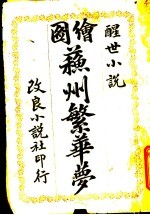 醒世小說
繪圖
蘇州繁華夢
改良小說社印行